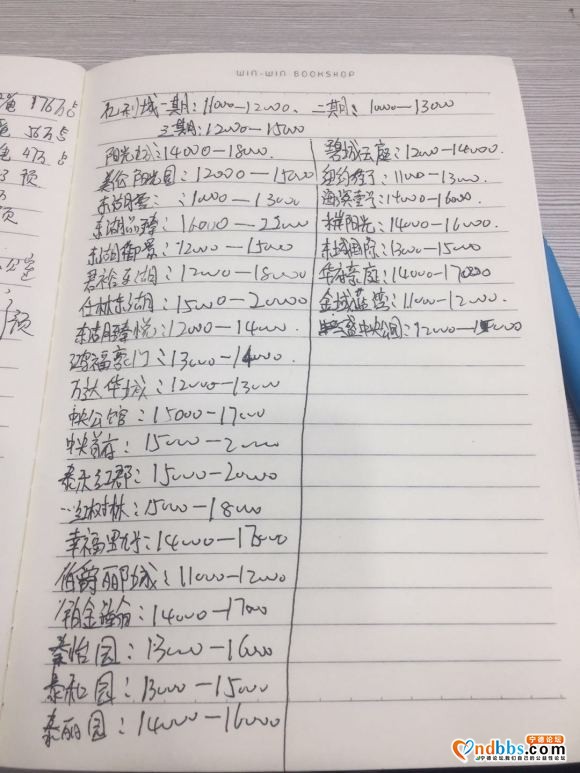 WIN-WIN BOOKSHOP
一期：11000—12000、二期：1000—13000
三期：12000—15000
阳光城：14000—18000.
美伦阳光园：12000—15000
东湖月墅：1000—13000
东湖品臻：16000—22000
东湖御景：12000—15000
君裕东湖：12000—18000
仕林东湖：15000—20000
东湖臻悦：12000—14000.
鸿福豪门：13000—14000.
万达华城：12000—13000
中央公馆：15000—17000
中央首府：15000—20000
泰禾红郡：15000—20000
红树林：15000—18000
幸福里：14000—17000
伯爵丽城：11000—12000
铂金瀚：14000—17000
泰怡园：13000—16000
泰和园：13000—15000
泰丽园：14000—16000
碧城云庭：12000—14000.
纽约：11000—13000
14000—16000
阳光：14000—16000
东城国际：13000—15000
华府豪庭：14000—17000
金域蓝湾：11000—12000.
中央公园：12000—15000
176万
56万
47万
预
宁德论坛
ndbbs.com
宁德论坛,我们自己的公益性论坛